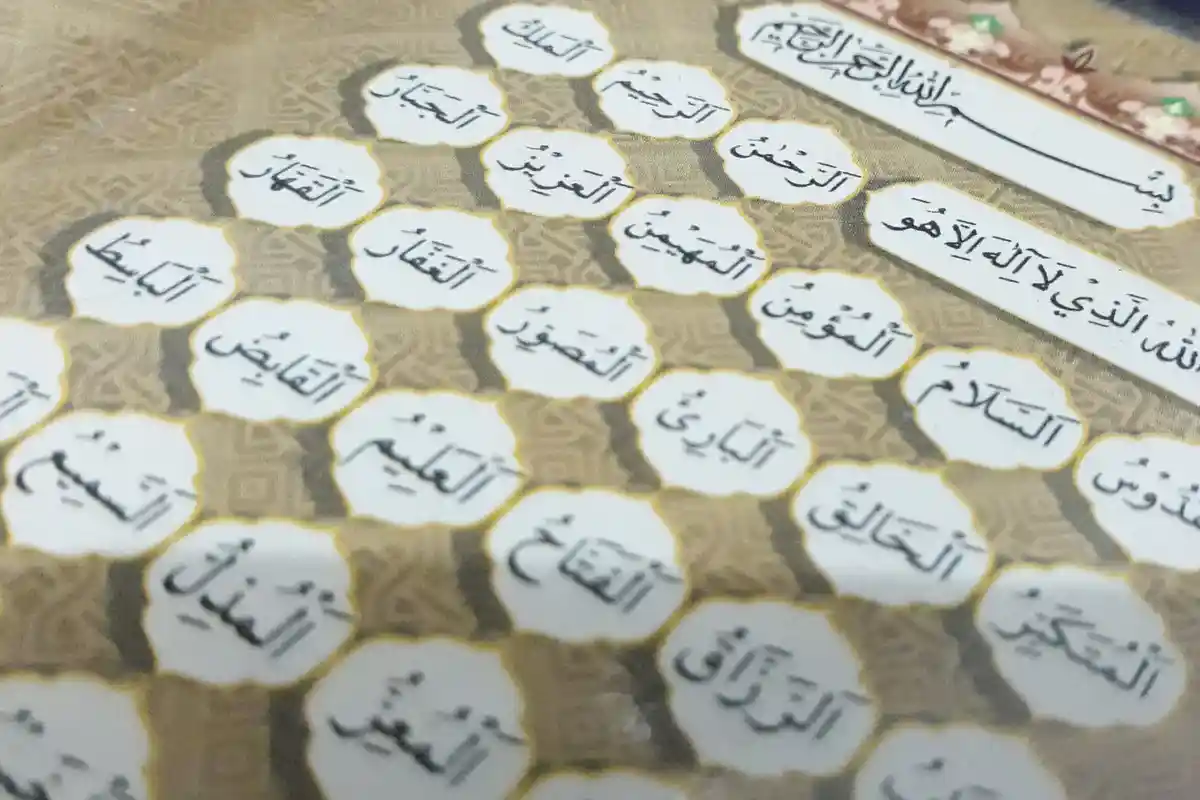 بِسْمِ اللهِ الرَّحْمٰنِ الرَّحِيْمِ
اللهُ الَّذِيْ لَآ اِلٰهَ اِلَّا هُوَ
اَلرَّحْمٰنُ اَلرَّحِيْمُ اَلْمَلِكُ
اَلسَّلَامُ اَلْمُؤْمِنُ اَلْمُهَيْمِنُ اَلْعَزِيْزُ اَلْجَبَّارُ
اَلْمُتَكَبِّرُ اَلْخَالِقُ اَلْبَارِئُ اَلْمُصَوِّرُ اَلْغَفَّارُ اَلْقَهَّارُ
اَلرَّزَّاقُ اَلْفَتَّاحُ اَلْعَلِيْمُ اَلْقَابِضُ اَلْبَاسِطُ
اَلْمُعِزُّ اَلْمُذِلُّ اَلسَّمِيْعُ